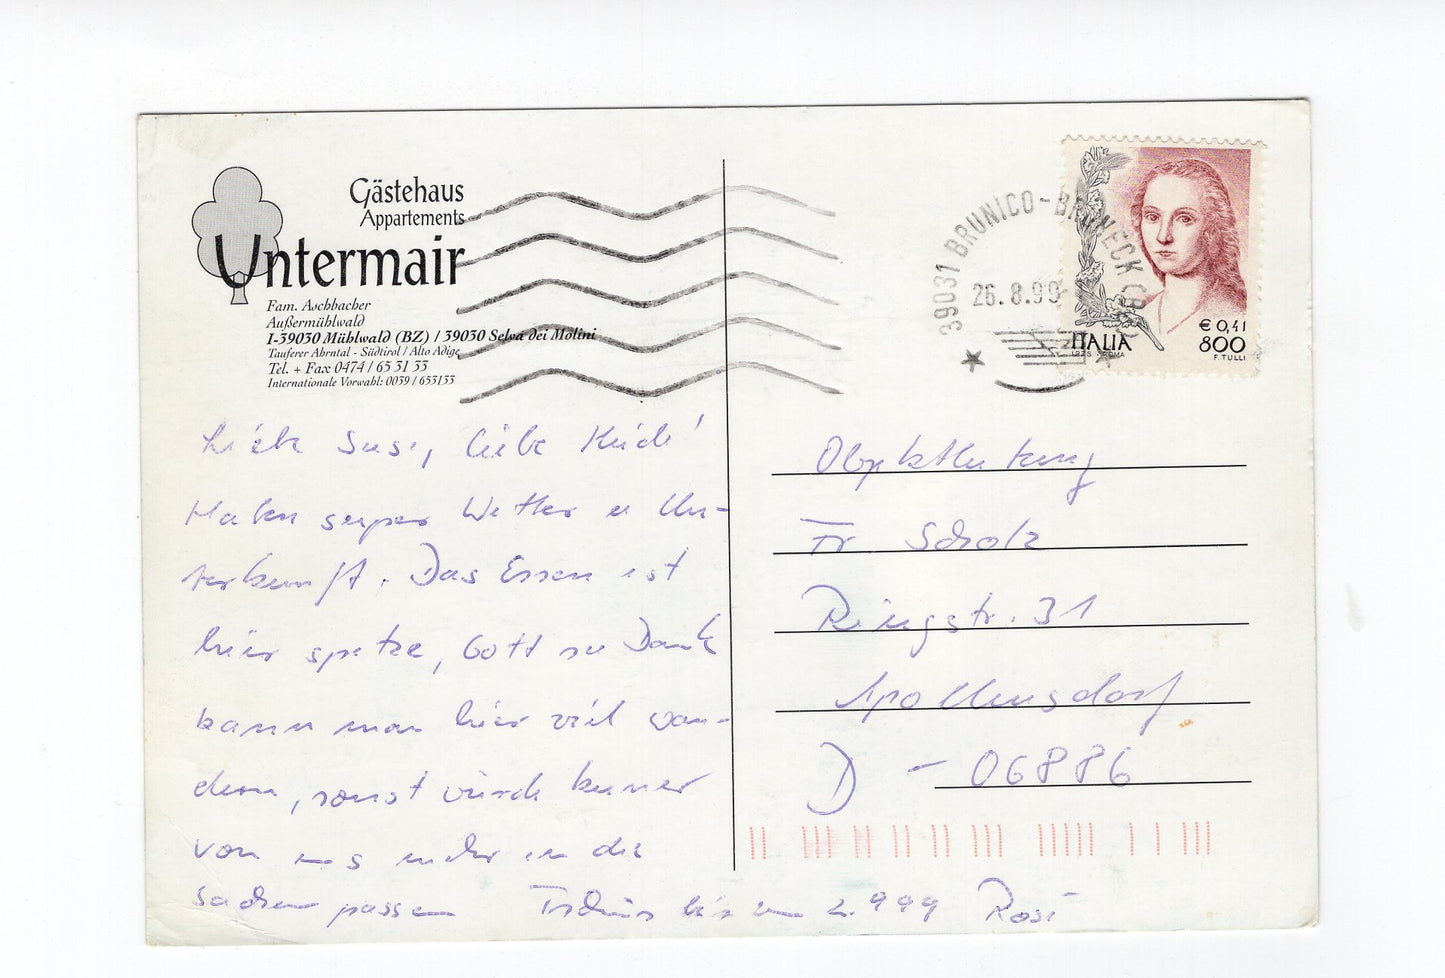 Gästehaus
Appartements
Untermair
Fam. Aschbacher
Außermühlwald
I-39030 Mühlwald (BZ) / 39030 Selva dei Molini
Tauferer Ahrntal - Südtirol / Alto Adige
Tel. + Fax 0474 / 65 31 33
Internationale Vorwahl: 0039 / 653133
39031 BRUNICO - BRUNECK
26.8.99
€ 0,41
800
ITALIA
F. TULLI
Liebe Susi, liebe Heide!
Haben super Wetter u Un-
terkunft. Das Essen ist
hier spitze, Gott sei Dank
kann man hier viel wan-
dern, sonst würde keiner
von uns mehr in die
Sachen passen Tschüs bis zum 2.999 Rosi
Objektleitung
Fr. Scholz
Ringstr. 31
Apollensdorf
D - 06886